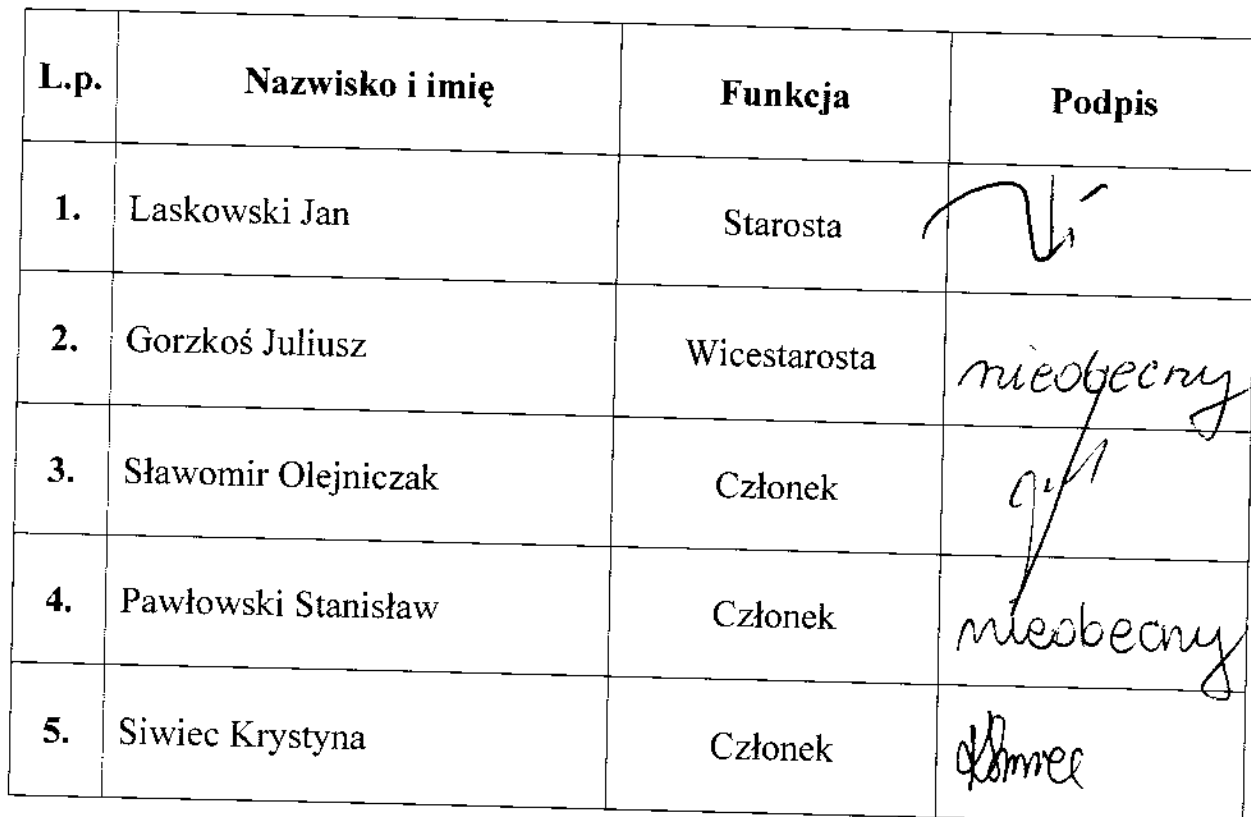 L.p. Nazwisko i imię Funkcja Podpis
1. Laskowski Jan Starosta
2. Gorzkoś Juliusz Wicestarosta nieobecny
3. Sławomir Olejniczak Członek
4. Pawłowski Stanisław Członek nieobecny
5. Siwiec Krystyna Członek